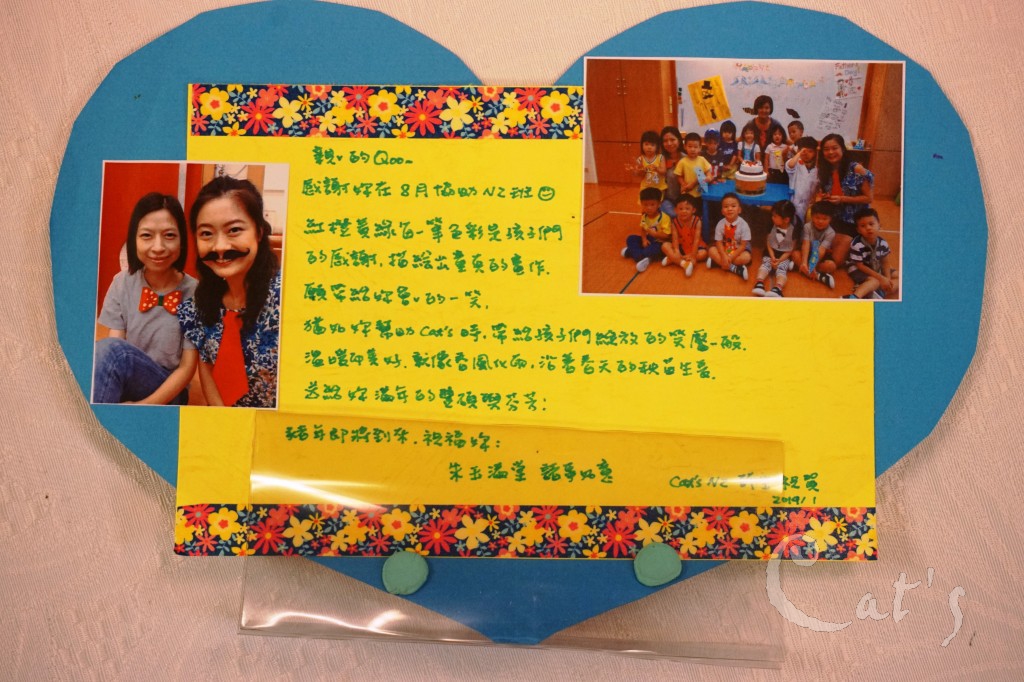 親、的Qoo~
感謝妳在8月協助N2班
紅橙黃綠每一筆色彩是孩子們
的感謝,描繪出童真的畫作.
願帶給妳最、的一笑,
猶如妳幫助Cat's時,帶給孩子們綻放的笑靨一般.
溫暖即美好.就像春風化雨,沿著春天的秧苗生長.
送給妳滿年的豐碩與芬芳!
豬年即將到來,祝福妳:
朱玉滿堂 諸事如意
Cat's N2 祝賀
2019/1
Cat's